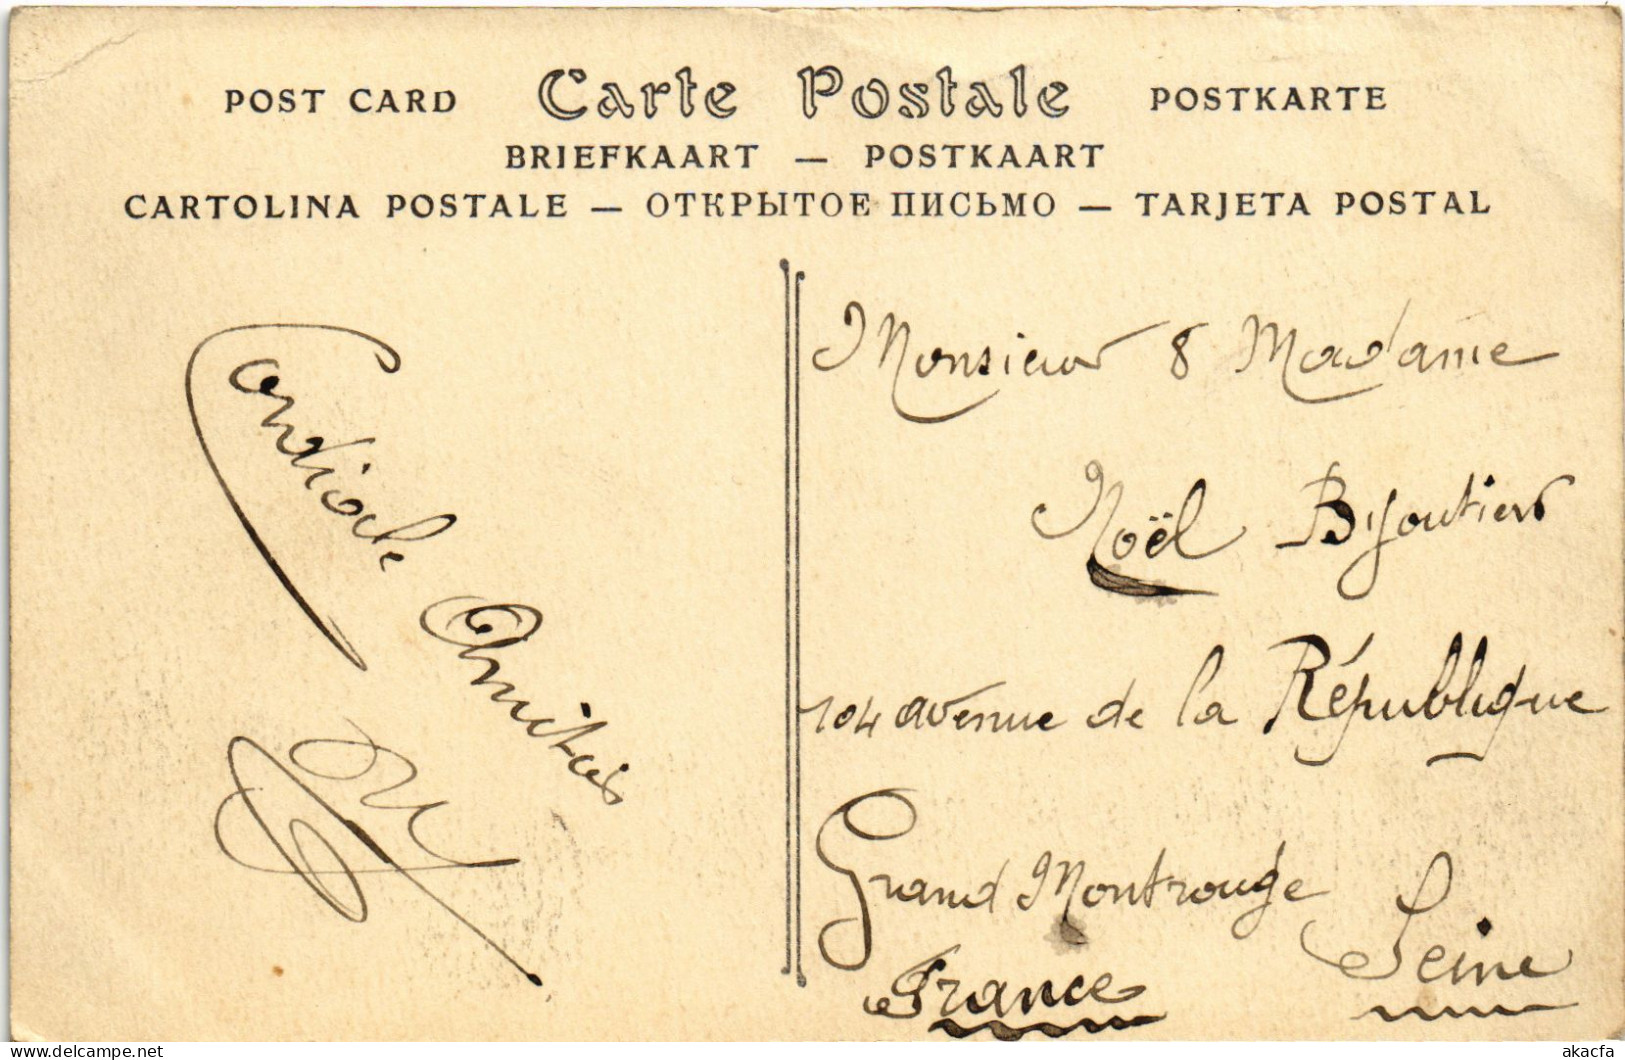 POST CARD Carte Postale POSTKARTE
BRIEFKAART — POSTKAART
CARTOLINA POSTALE — ОТКРЫТОЕ ПИСЬМО — TARJETA POSTAL
Cordiale Amitiés
Monsieur & Madame
Noël Bijoutier
104 avenue de la République
Grand Montrouge
Seine
France
delcampe.net
akacfa